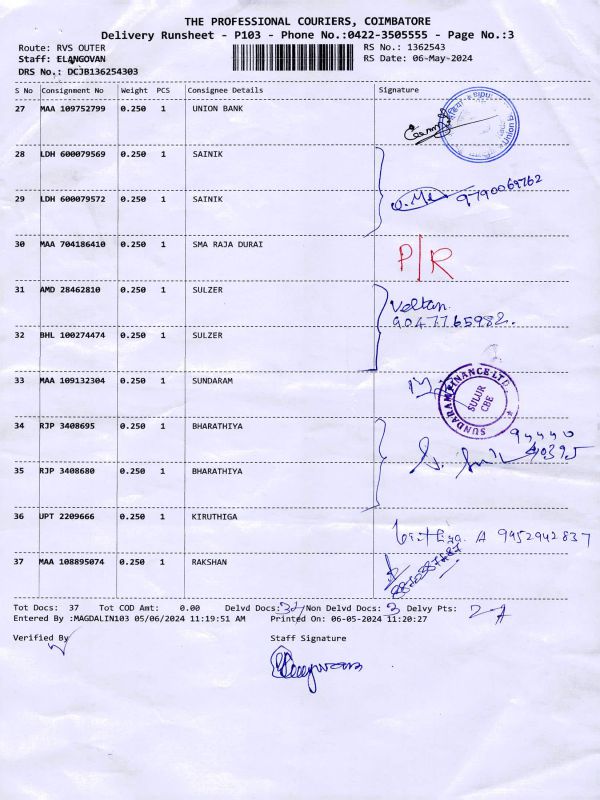 THE PROFESSIONAL COURIERS, COIMBATORE
Delivery Runsheet - P103 - Phone No.:0422-3505555 - Page No.:3
Route: RVS OUTER RS No.: 1362543
Staff: ELANGOVAN RS Date: 06-May-2024
DRS No.: DCJB136254303
S No Consignment No Weight PCS Consignee Details Signature
27 MAA 109752799 0.250 1 UNION BANK
28 LDH 600079569 0.250 1 SAINIK
29 LDH 600079572 0.250 1 SAINIK 9790069762
30 MAA 704186410 0.250 1 SMA RAJA DURAI P/R
31 AMD 28462810 0.250 1 SULZER Veltan.
9047765982.
32 BHL 100274474 0.250 1 SULZER
33 MAA 109132304 0.250 1 SUNDARAM SUNDARAM FINANCE LTD. SULUR CBE
34 RJP 3408695 0.250 1 BHARATHIYA
35 RJP 3408680 0.250 1 BHARATHIYA
36 UPT 2209666 0.250 1 KIRUTHIGA A 9452942837
37 MAA 108895074 0.250 1 RAKSHAN
Tot Docs: 37 Tot COD Amt: 0.00 Delvd Docs: 34 Non Delvd Docs: 3 Delvy Pts:
Entered By :MAGDALIN103 05/06/2024 11:19:51 AM Printed On: 06-05-2024 11:20:27
Verified By Staff Signature